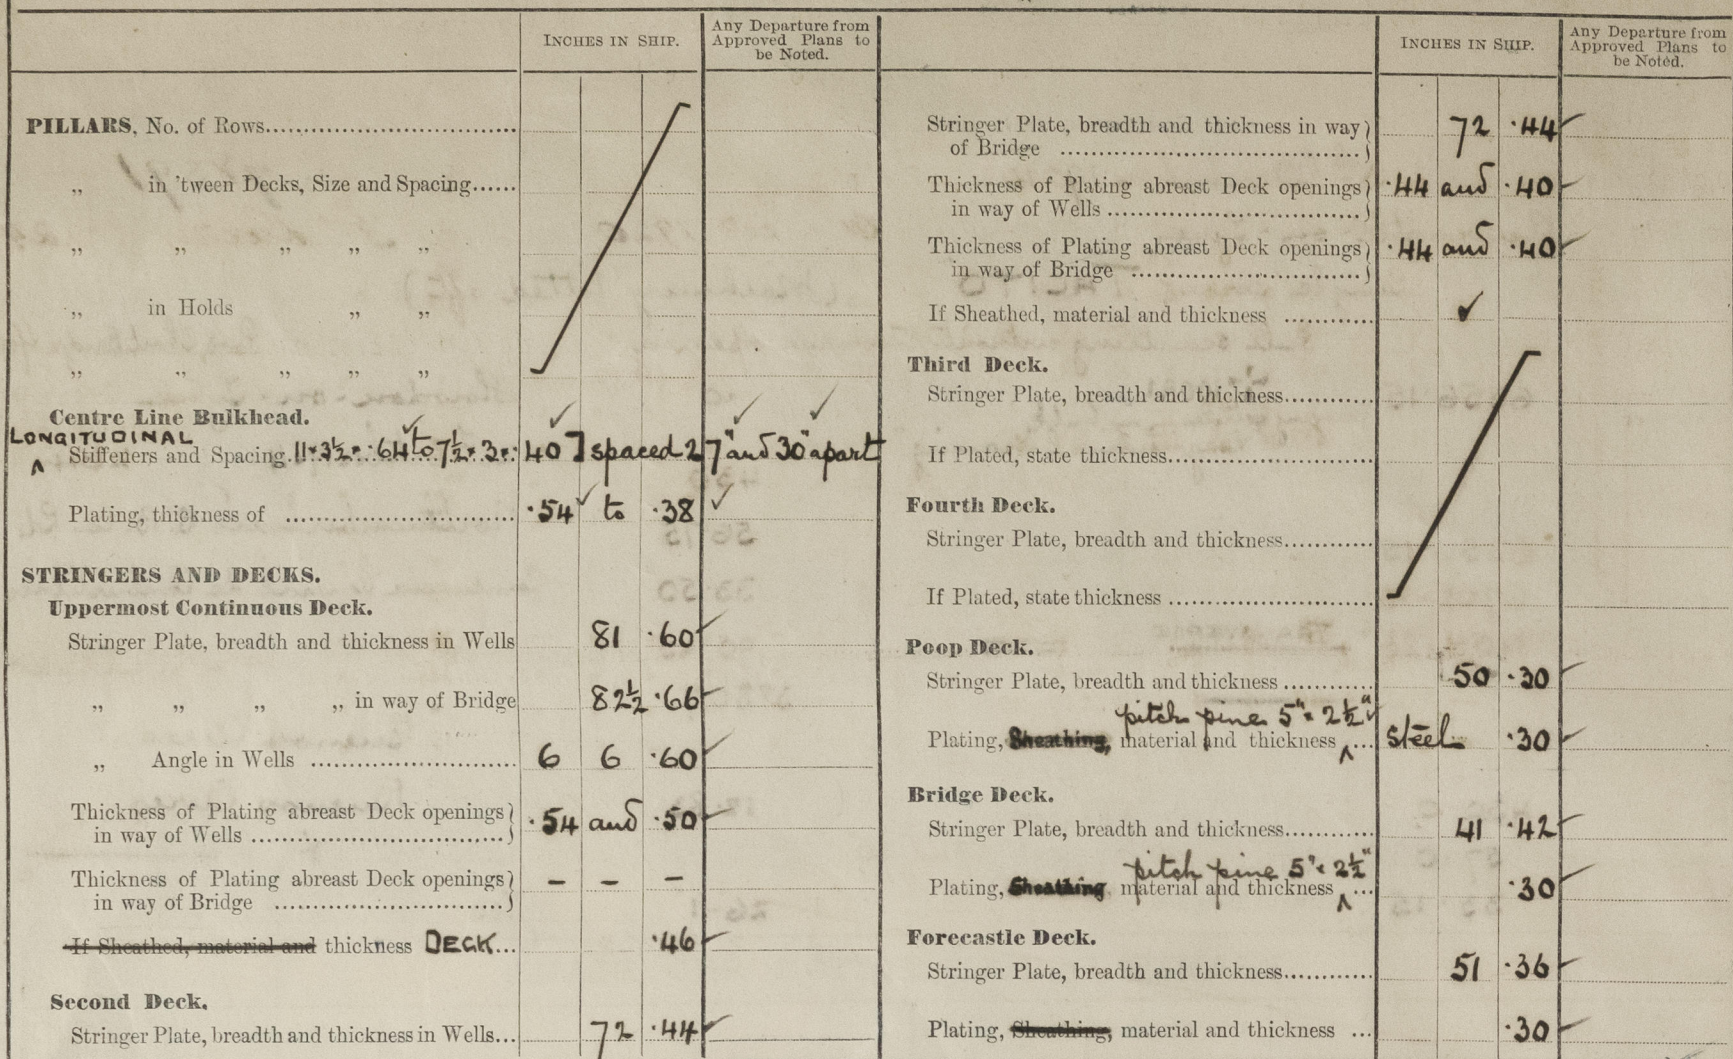 INCHES IN SHIP.
Any Departure from
Approved Plans to
be Noted.
PILLARS, No. of Rows
„ in 'tween Decks, Size and Spacing
„ „ „ „ „
„ in Holds „ „
„ „ „ „ „
Centre Line Bulkhead.
LONGITUDINAL
Stiffeners and Spacing 11 × 3½ × .64 to 7½ × 3 × .40 ] spaced 27" and 30" apart
Plating, thickness of .54 to .38
STRINGERS AND DECKS.
Uppermost Continuous Deck.
Stringer Plate, breadth and thickness in Wells 81 .60
„ „ „ „ in way of Bridge 82½ .66
„ Angle in Wells 6 6 .60
Thickness of Plating abreast Deck openings
in way of Wells .54 and .50
Thickness of Plating abreast Deck openings
in way of Bridge – – –
If Sheathed, material and thickness DECK .46
Second Deck.
Stringer Plate, breadth and thickness in Wells 72 .44
INCHES IN SHIP.
Any Departure from
Approved Plans to
be Noted.
Stringer Plate, breadth and thickness in way
of Bridge 72 .44
Thickness of Plating abreast Deck openings
in way of Wells .44 and .40
Thickness of Plating abreast Deck openings
in way of Bridge .44 and .40
If Sheathed, material and thickness ✓
Third Deck.
Stringer Plate, breadth and thickness
If Plated, state thickness
Fourth Deck.
Stringer Plate, breadth and thickness
If Plated, state thickness
Poop Deck.
Stringer Plate, breadth and thickness 50 .30
pitch pine 5" × 2½"
Plating, Sheathing, material and thickness steel .30
Bridge Deck.
Stringer Plate, breadth and thickness 41 .42
pitch pine 5" × 2½"
Plating, Sheathing material and thickness .30
Forecastle Deck.
Stringer Plate, breadth and thickness 51 .36
Plating, Sheathing, material and thickness .30